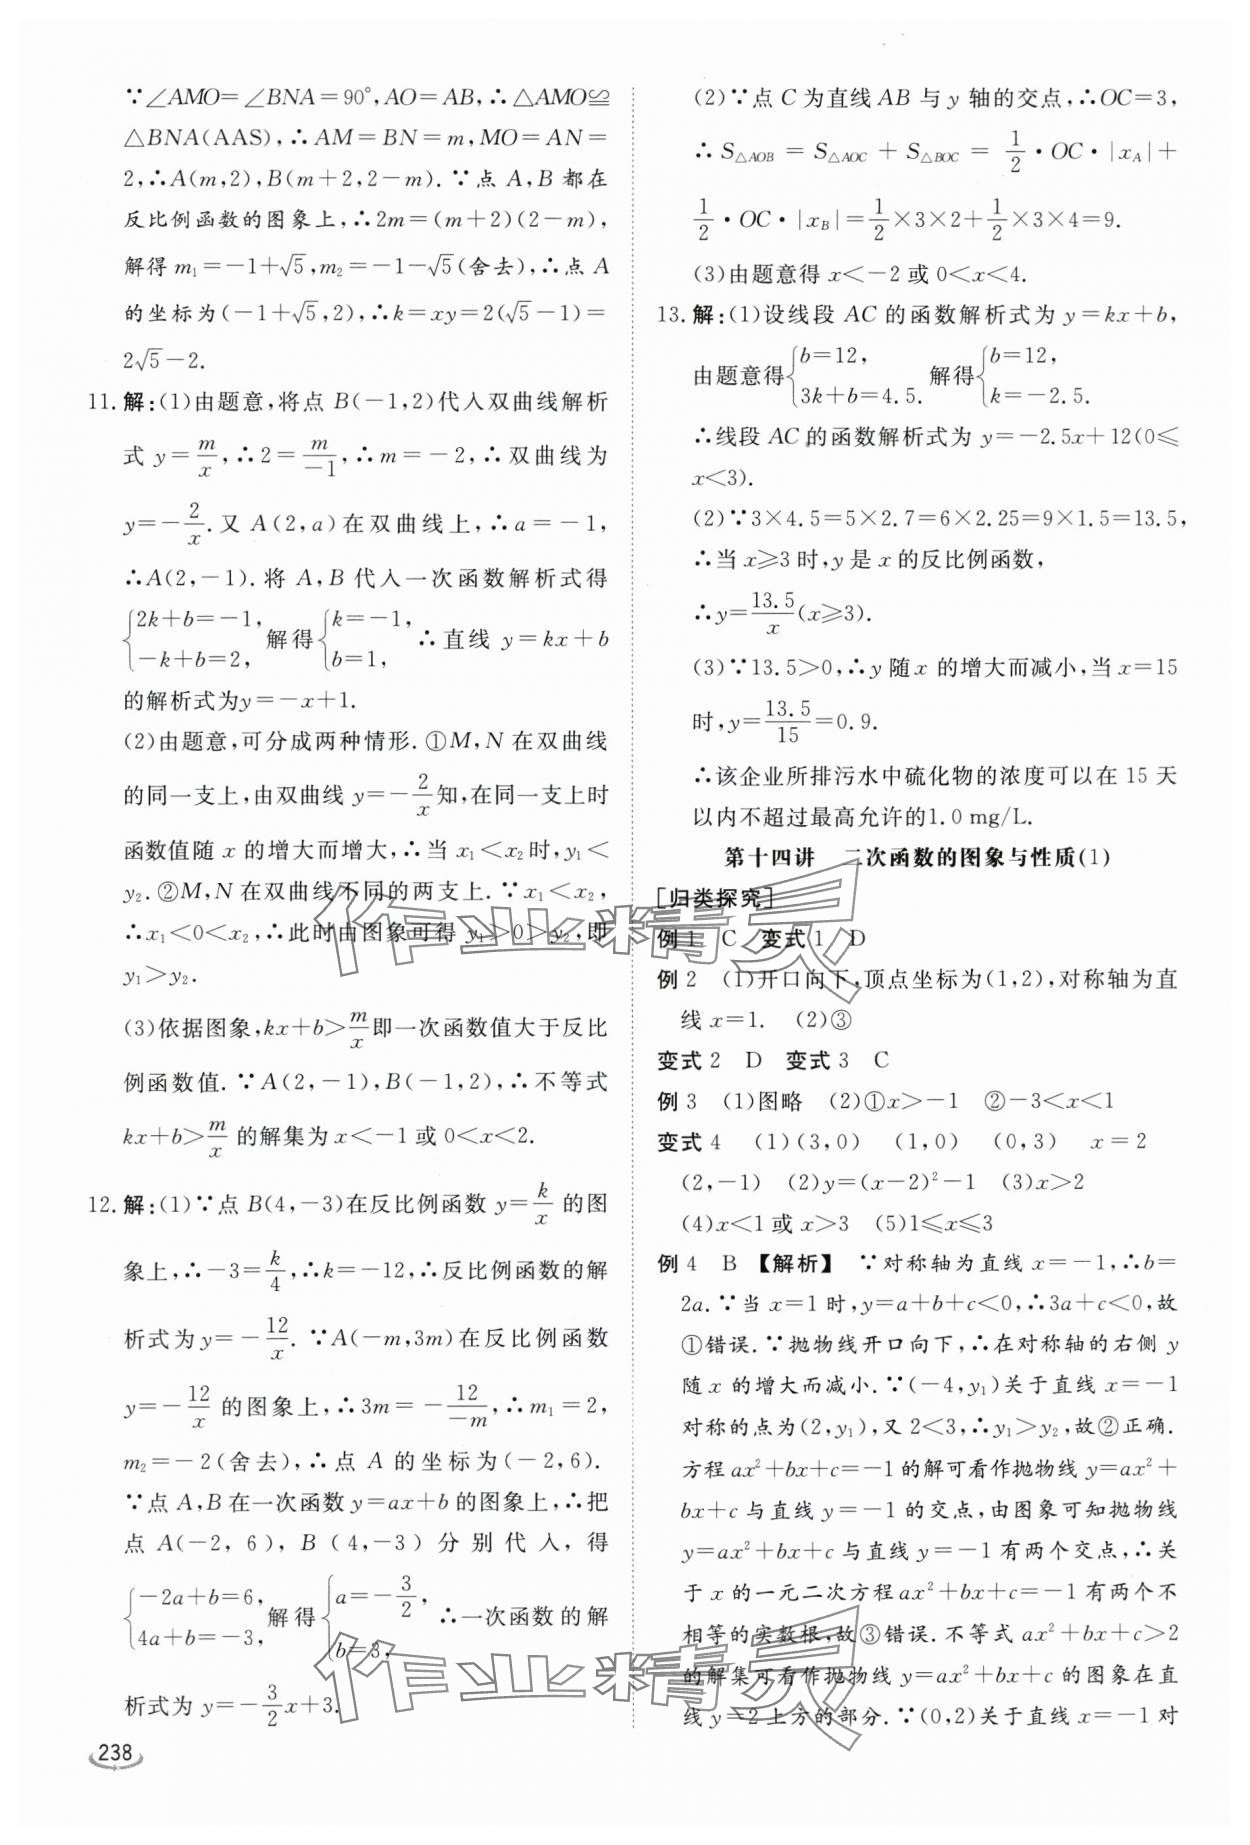 ∵∠AMO=∠BNA=90°,AO=AB,∴△AMO≌
△BNA(AAS),∴AM=BN=m,MO=AN=
2,∴A(m,2),B(m+2,2-m).∵点 A,B 都在
反比例函数的图象上,∴2m=(m+2)(2-m),
解得 m₁=-1+√5,m₂=-1-√5(舍去),∴点 A
的坐标为(-1+√5,2),∴k=xy=2(√5-1)=
2√5-2.
11. 解:(1)由题意,将点 B(-1,2)代入双曲线解析
式 y=m/x,∴2=m/-1,∴m=-2,∴双曲线为
y=-2/x.又 A(2,a)在双曲线上,∴a=-1,
∴A(2,-1).将 A,B 代入一次函数解析式得
{2k+b=-1, -k+b=2, 解得{k=-1, b=1, ∴直线 y=kx+b
的解析式为y=-x+1.
(2)由题意,可分成两种情形.①M,N 在双曲线
的同一支上,由双曲线 y=-2/x知,在同一支上时
函数值随 x 的增大而增大,∴当 x₁<x₂时,y₁<
y₂.②M,N 在双曲线不同的两支上.∵x₁<x₂,
∴x₁<0<x₂,∴此时由图象可得 y₁>0>y₂,即
y₁>y₂.
(3)依据图象,kx+b>m/x即一次函数值大于反比
例函数值.∵A(2,-1),B(-1,2),∴不等式
kx+b>m/x 的解集为 x<-1 或 0<x<2.
12. 解:(1)∵点 B(4,-3)在反比例函数 y=k/x 的图
象上,∴-3=k/4,∴k=-12,∴反比例函数的解
析式为 y=-12/x.∵A(-m,3m)在反比例函数
y=-12/x 的图象上,∴3m=-12/-m,∴m₁=2,
m₂=-2(舍去),∴点 A 的坐标为(-2,6).
∵点 A,B 在一次函数 y=ax+b 的图象上,∴把
点 A(-2,6),B(4,-3)分别代入,得
{-2a+b=6, 4a+b=-3, 解得{a=-3/2, b=3, ∴一次函数的解
析式为 y=-3/2x+3.
238
(2)∵点 C 为直线 AB 与 y 轴的交点,∴OC=3,
∴S△AOB=S△AOC+S△BOC=1/2·OC·|x_A|+
1/2·OC·|x_B|=1/2×3×2+1/2×3×4=9.
(3)由题意得 x<-2 或 0<x<4.
13. 解:(1)设线段 AC 的函数解析式为 y=kx+b,
由题意得{b=12, 3k+b=4.5. 解得{b=12, k=-2.5.
∴线段 AC 的函数解析式为 y=-2.5x+12(0≤
x<3).
(2)∵3×4.5=5×2.7=6×2.25=9×1.5=13.5,
∴当 x≥3 时,y 是 x 的反比例函数,
∴y=13.5/x(x≥3).
(3)∵13.5>0,∴y 随 x 的增大而减小,当 x=15
时,y=13.5/15=0.9.
∴该企业所排污水中硫化物的浓度可以在 15 天
以内不超过最高允许的1.0 mg/L.
第十四讲 二次函数的图象与性质(1)
[归类探究]
例 1 C 变式 1 D
例 2 (1)开口向下,顶点坐标为(1,2),对称轴为直
线 x=1. (2)③
变式 2 D 变式 3 C
例 3 (1)图略 (2)①x>-1 ②-3<x<1
变式 4 (1)(3,0) (1,0) (0,3) x=2
(2,-1) (2)y=(x-2)²-1 (3)x>2
(4)x<1 或 x>3 (5)1≤x≤3
例 4 B 【解析】 ∵对称轴为直线 x=-1,∴b=
2a.∵当 x=1 时,y=a+b+c<0,∴3a+c<0,故
①错误.∵抛物线开口向下,∴在对称轴的右侧 y
随 x 的增大而减小.∵(-4,y₁)关于直线 x=-1
对称的点为(2,y₁),又 2<3,∴y₁>y₂,故②正确.
方程 ax²+bx+c=-1 的解可看作抛物线 y=ax²+
bx+c 与直线 y=-1 的交点,由图象可知抛物线
y=ax²+bx+c 与直线 y=-1 有两个交点,∴关
于 x 的一元二次方程 ax²+bx+c=-1 有两个不
相等的实数根,故③错误.不等式 ax²+bx+c>2
的解集可看作抛物线 y=ax²+bx+c 的图象在直
线 y=2 上方的部分.∵(0,2)关于直线 x=-1 对
作业精灵
作业精灵